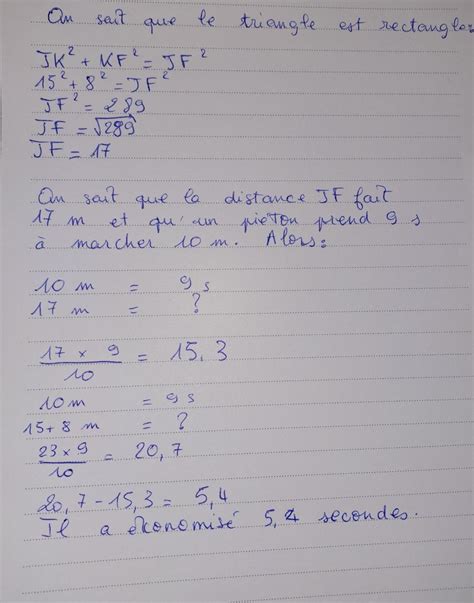 On sait que le triangle est rectangle:
JK² + KF² = JF²
15² + 8² = JF²
JF² = 289
JF = √289
JF = 17
On sait que la distance JF fait
17 m et qu'un pieton prend 9 s
à marcher 10 m. Alors:
10 m = 9 s
17 m = ?
17 × 9 / 10 = 15,3
10 m = 9 s
15+8 m = ?
23 × 9 / 10 = 20,7
20,7 - 15,3 = 5,4
Il a ékonomisé 5,4 secondes.